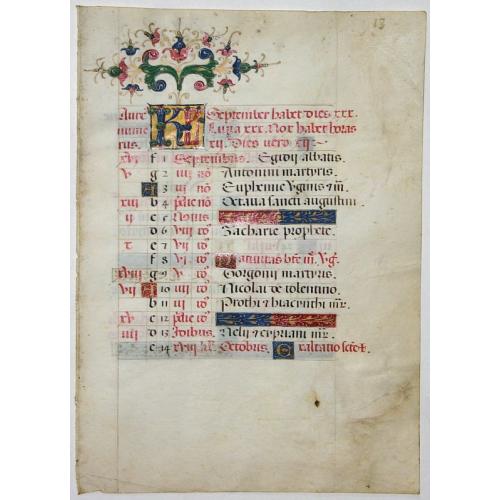 13
Aure KL September habet dies xxx.
nume Luna xxx. Nox habet horas
rus. xij. Dies vero xij
xvi f 1 Septembris. Egidij abbatis.
v g 2 iiij nõ Antonini martyris.
A 3 iij nõ Euphemie v̄ginis & m̄r.
xiij b 4 pdie nõ Octava sancti augustini
ij c 5 Nonis
d 6 viij id9 Zacharie prophete.
x e 7 vij id9
f 8 vi id9 Natiuitas bt̄e m̄. v̄g.
xviij g 9 v id9 Gorgonij martyris.
vij A 10 iiij id9 Nicolai de tolentino.
b 11 iij id9 Prothi & hiacynthi m̄r.
xv c 12 pdie id9
iiij d 13 Idibus
e 14 xviij kl. Octobris. Exaltatio scẽ †.